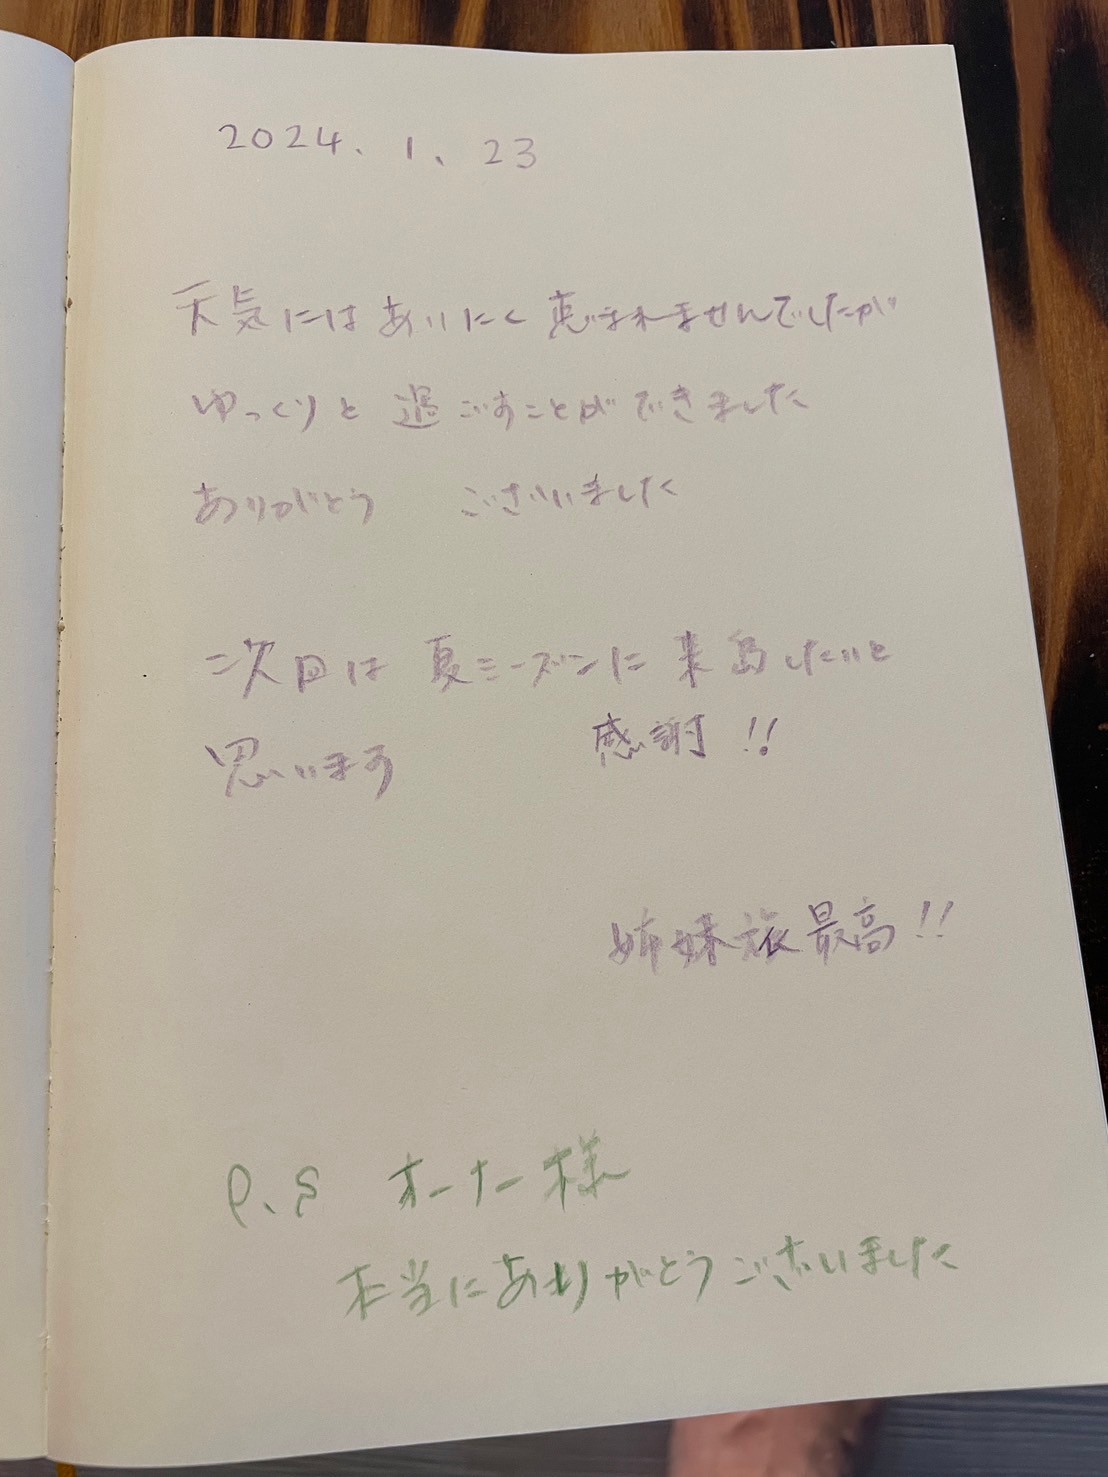 2024. 1. 23
天気にはあいにく恵まれませんでしたが
ゆっくりと過ごすことができました
ありがとう ございました
二次回は夏シーズンに来島したいと
思います 感謝!!
姉妹旅最高!!
P.S オーナー様
本当にありがとうございました